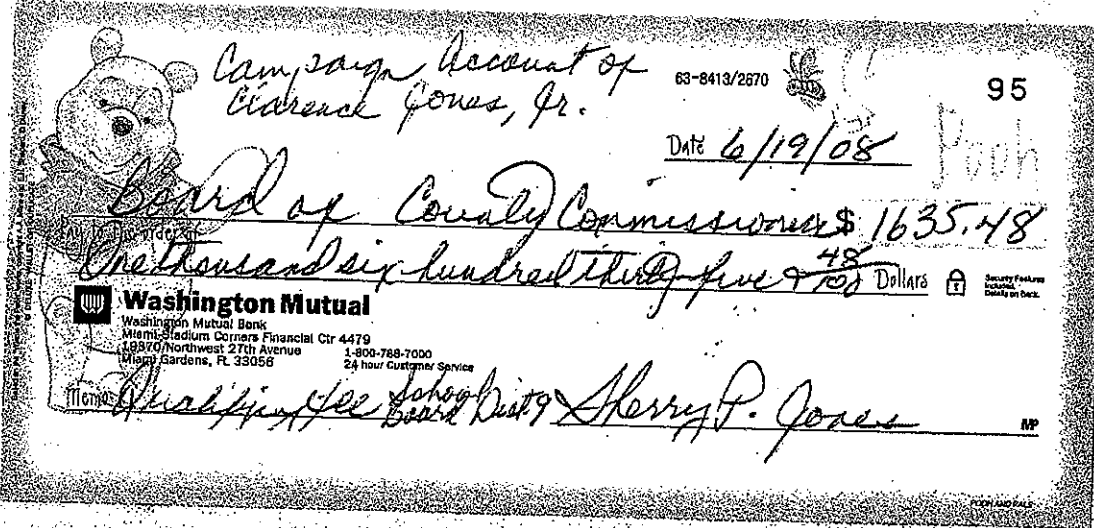 Campaign Account of
Clarence Jones, Jr.
63-8413/2670
95
Date 6/19/08
Pooh
Board of County Commissioners $ 1635.48
Pay to the order of
One thousand six hundred thirty five & 48/100 Dollars
Security Features
Included.
Details on Back.
Washington Mutual
Washington Mutual Bank
Miami-Stadium Corners Financial Ctr 4479
19870 Northwest 27th Avenue
Miami Gardens, FL 33056
1-800-788-7000
24 hour Customer Service
Memo Qualifying fee School Board Dist 9 Sherry P. Jones
MP